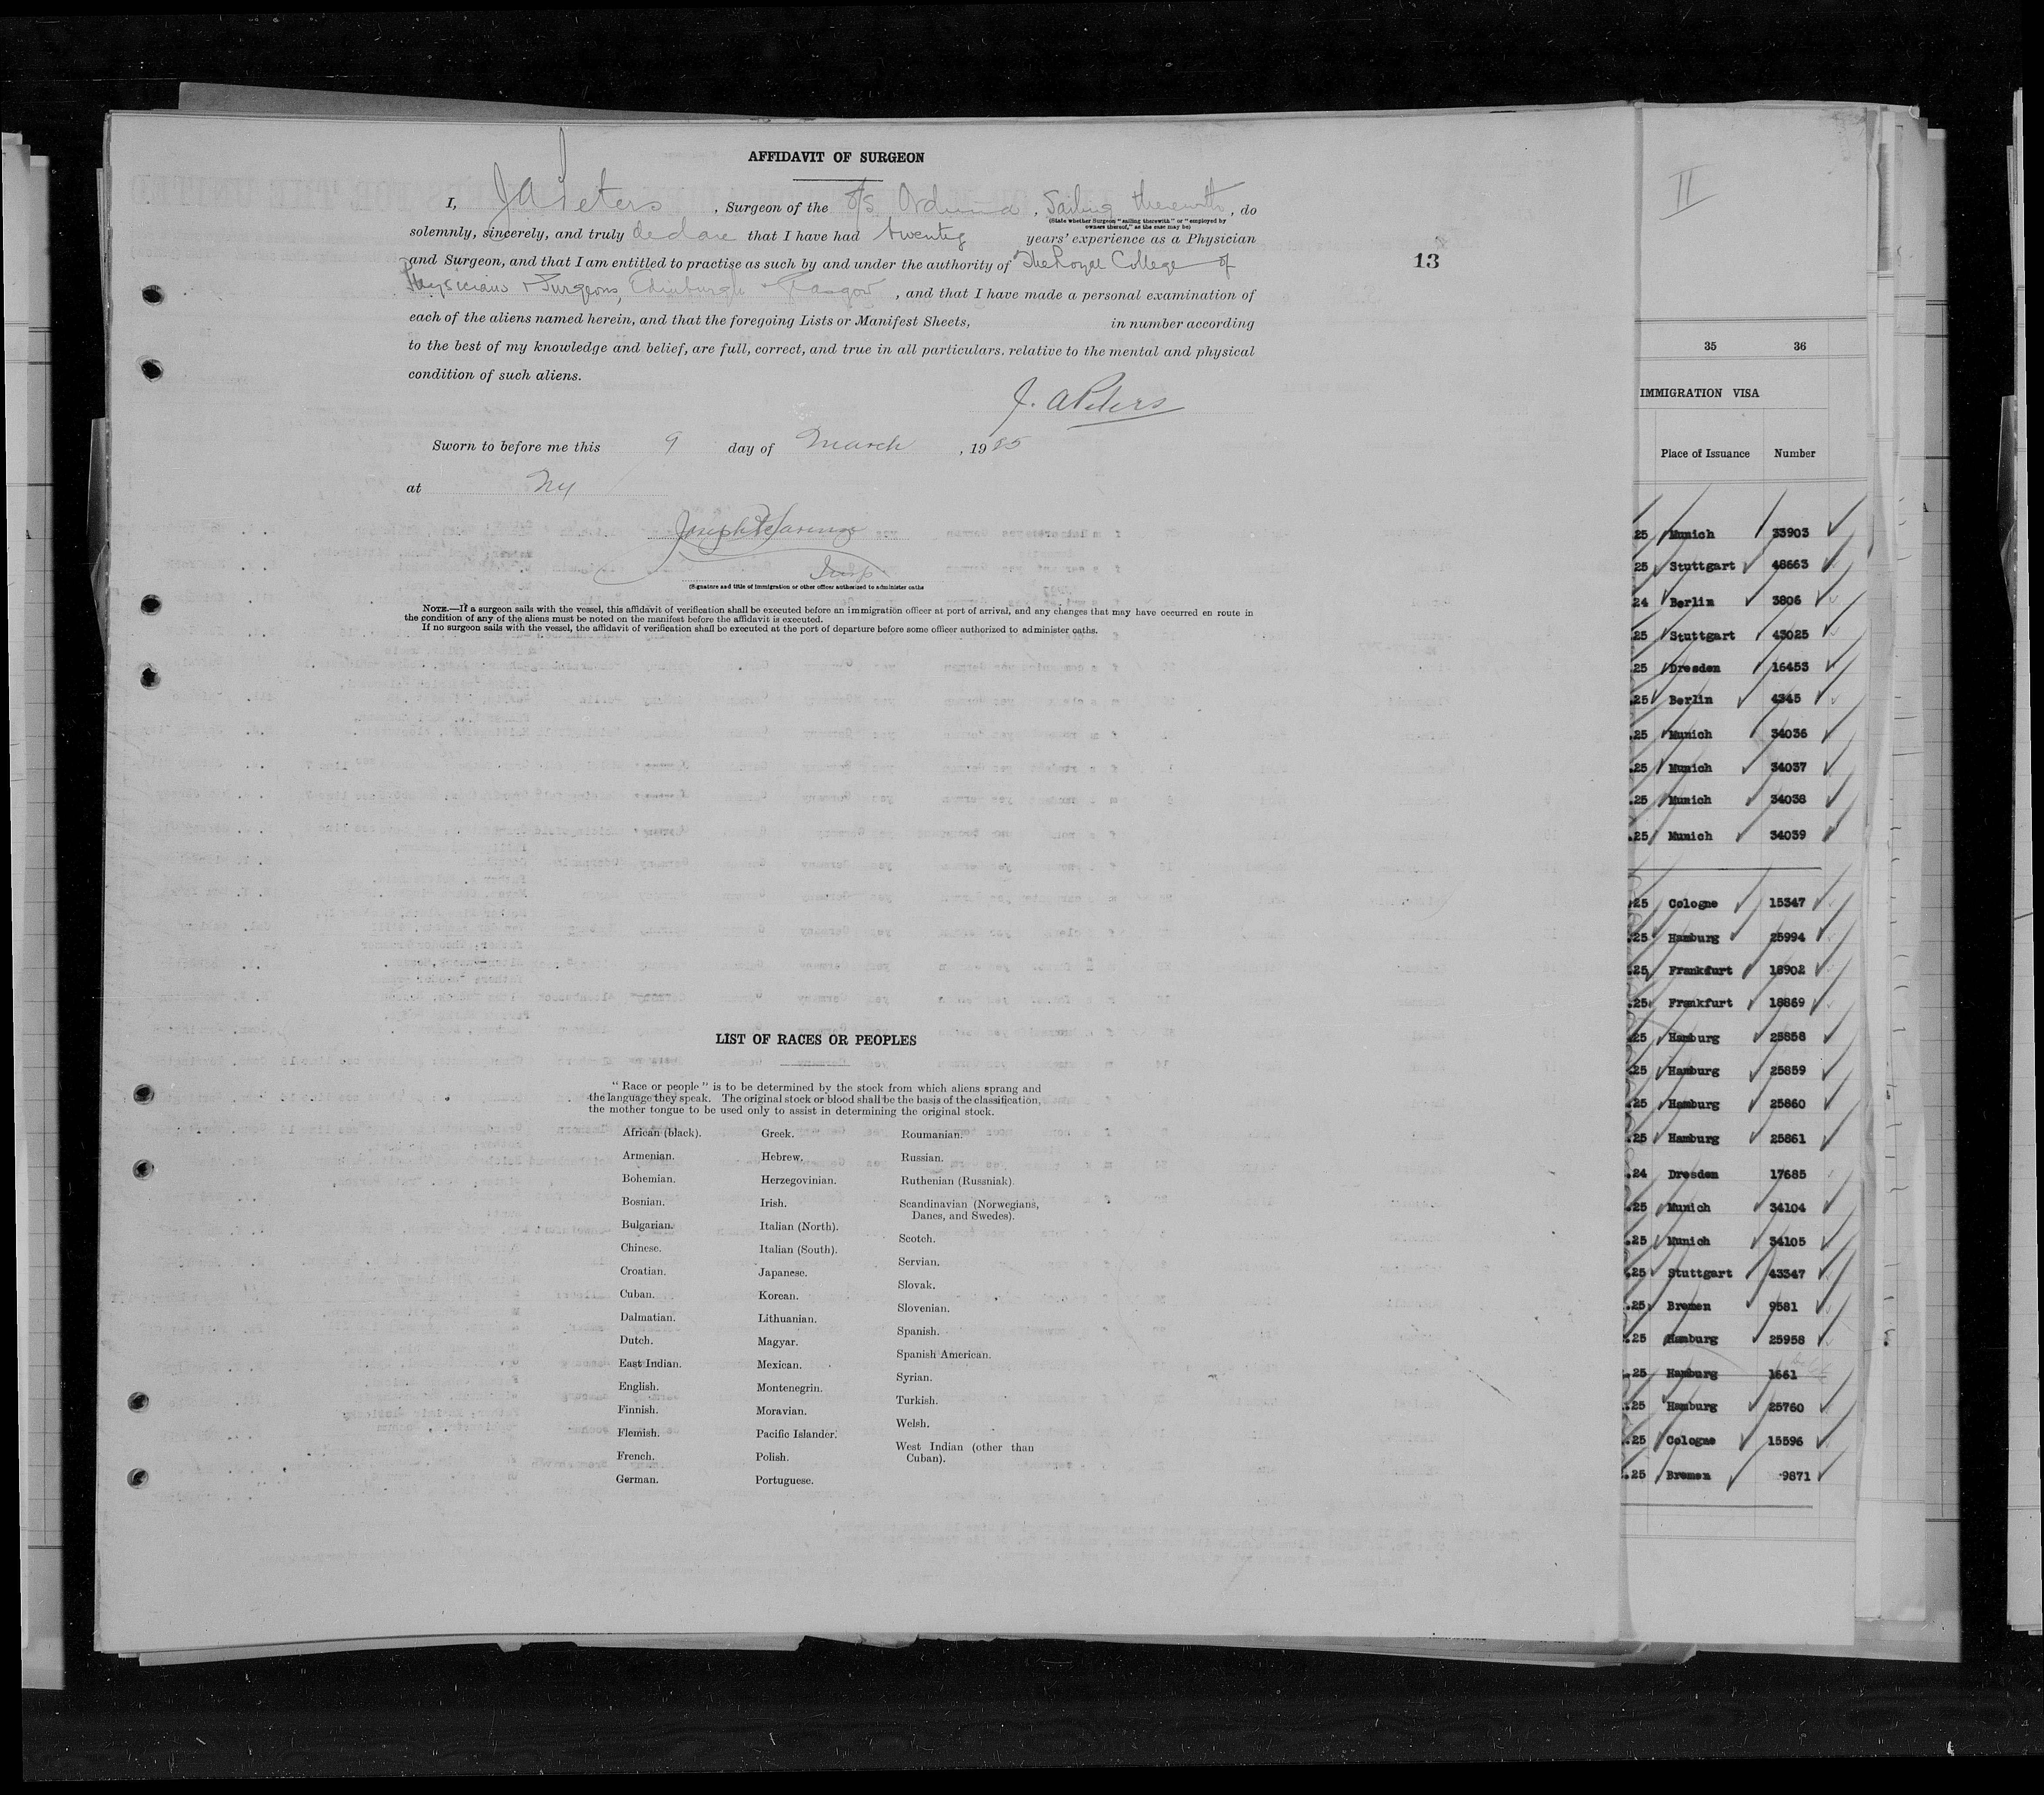 AFFIDAVIT OF SURGEON
I, J A Peters , Surgeon of the S/S Orduna , Sailing therewith , do
(State whether Surgeon "sailing therewith" or "employed by
owners thereof," as the case may be)
solemnly, sincerely, and truly declare that I have had twenty years' experience as a Physician
and Surgeon, and that I am entitled to practise as such by and under the authority of The Royal College of
Physicians & Surgeons, Edinburgh & Glasgow , and that I have made a personal examination of
each of the aliens named herein, and that the foregoing Lists or Manifest Sheets, in number according
to the best of my knowledge and belief, are full, correct, and true in all particulars, relative to the mental and physical
condition of such aliens.
J. A Peters
Sworn to before me this 9 day of March , 1925
at NY
Joseph
Insp
(Signature and title of immigration or other officer authorized to administer oaths
NOTE.—If a surgeon sails with the vessel, this affidavit of verification shall be executed before an immigration officer at port of arrival, and any changes that may have occurred en route in
the condition of any of the aliens must be noted on the manifest before the affidavit is executed.
If no surgeon sails with the vessel, the affidavit of verification shall be executed at the port of departure before some officer authorized to administer oaths.
13
LIST OF RACES OR PEOPLES
"Race or people" is to be determined by the stock from which aliens sprang and
the language they speak. The original stock or blood shall be the basis of the classification,
the mother tongue to be used only to assist in determining the original stock.
African (black).
Armenian.
Bohemian.
Bosnian.
Bulgarian.
Chinese.
Croatian.
Cuban.
Dalmatian.
Dutch.
East Indian.
English.
Finnish.
Flemish.
French.
German.
Greek.
Hebrew.
Herzegovinian.
Irish.
Italian (North).
Italian (South).
Japanese.
Korean.
Lithuanian.
Magyar.
Mexican.
Montenegrin.
Moravian.
Pacific Islander.
Polish.
Portuguese.
Roumanian.
Russian.
Ruthenian (Russniak)
Scandinavian (Norwegians,
Danes, and Swedes).
Scotch.
Servian.
Slovak.
Slovenian.
Spanish.
Spanish American.
Syrian.
Turkish.
Welsh.
West Indian (other than
Cuban).
II
35 36
IMMIGRATION VISA
Place of Issuance Number
25 Munich 33903
25 Stuttgart 48663
24 Berlin 3806
25 Stuttgart 43025
25 Dresden 16453
.25 Berlin 4345
.25 Munich 34036
.25 Munich 34037
.25 Munich 34038
.25 Munich 34039
.25 Cologne 15347
.25 Hamburg 25994
.25 Frankfurt 18902
.25 Frankfurt 18869
.25 Hamburg 25858
.25 Hamburg 25859
.25 Hamburg 25860
.25 Hamburg 25861
.24 Dresden 17685
.25 Munich 34104
.25 Munich 34105
.25 Stuttgart 43347
.25 Bremen 9581
.25 Hamburg 25958
.25 Hamburg 1661
.25 Hamburg 25760
.25 Cologne 15596
.25 Bremen 9871